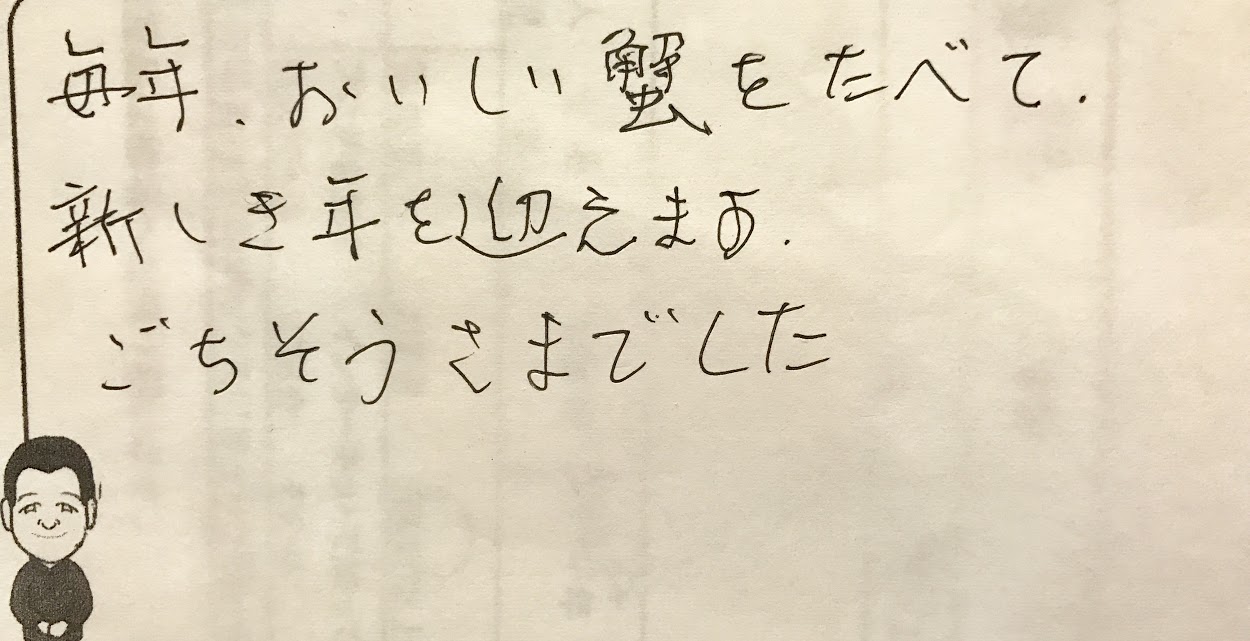 毎年、おいしい蟹をたべて、
新しき年を迎えます.
ごちそうさまでした